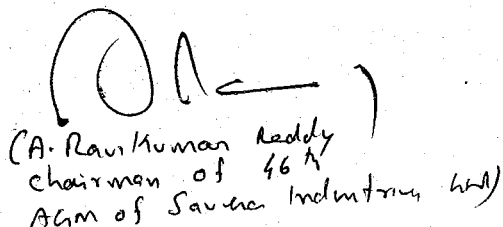 (A. Ravi Kumar Reddy
Chairman of 46th
AGM of Savera Industries Ltd)